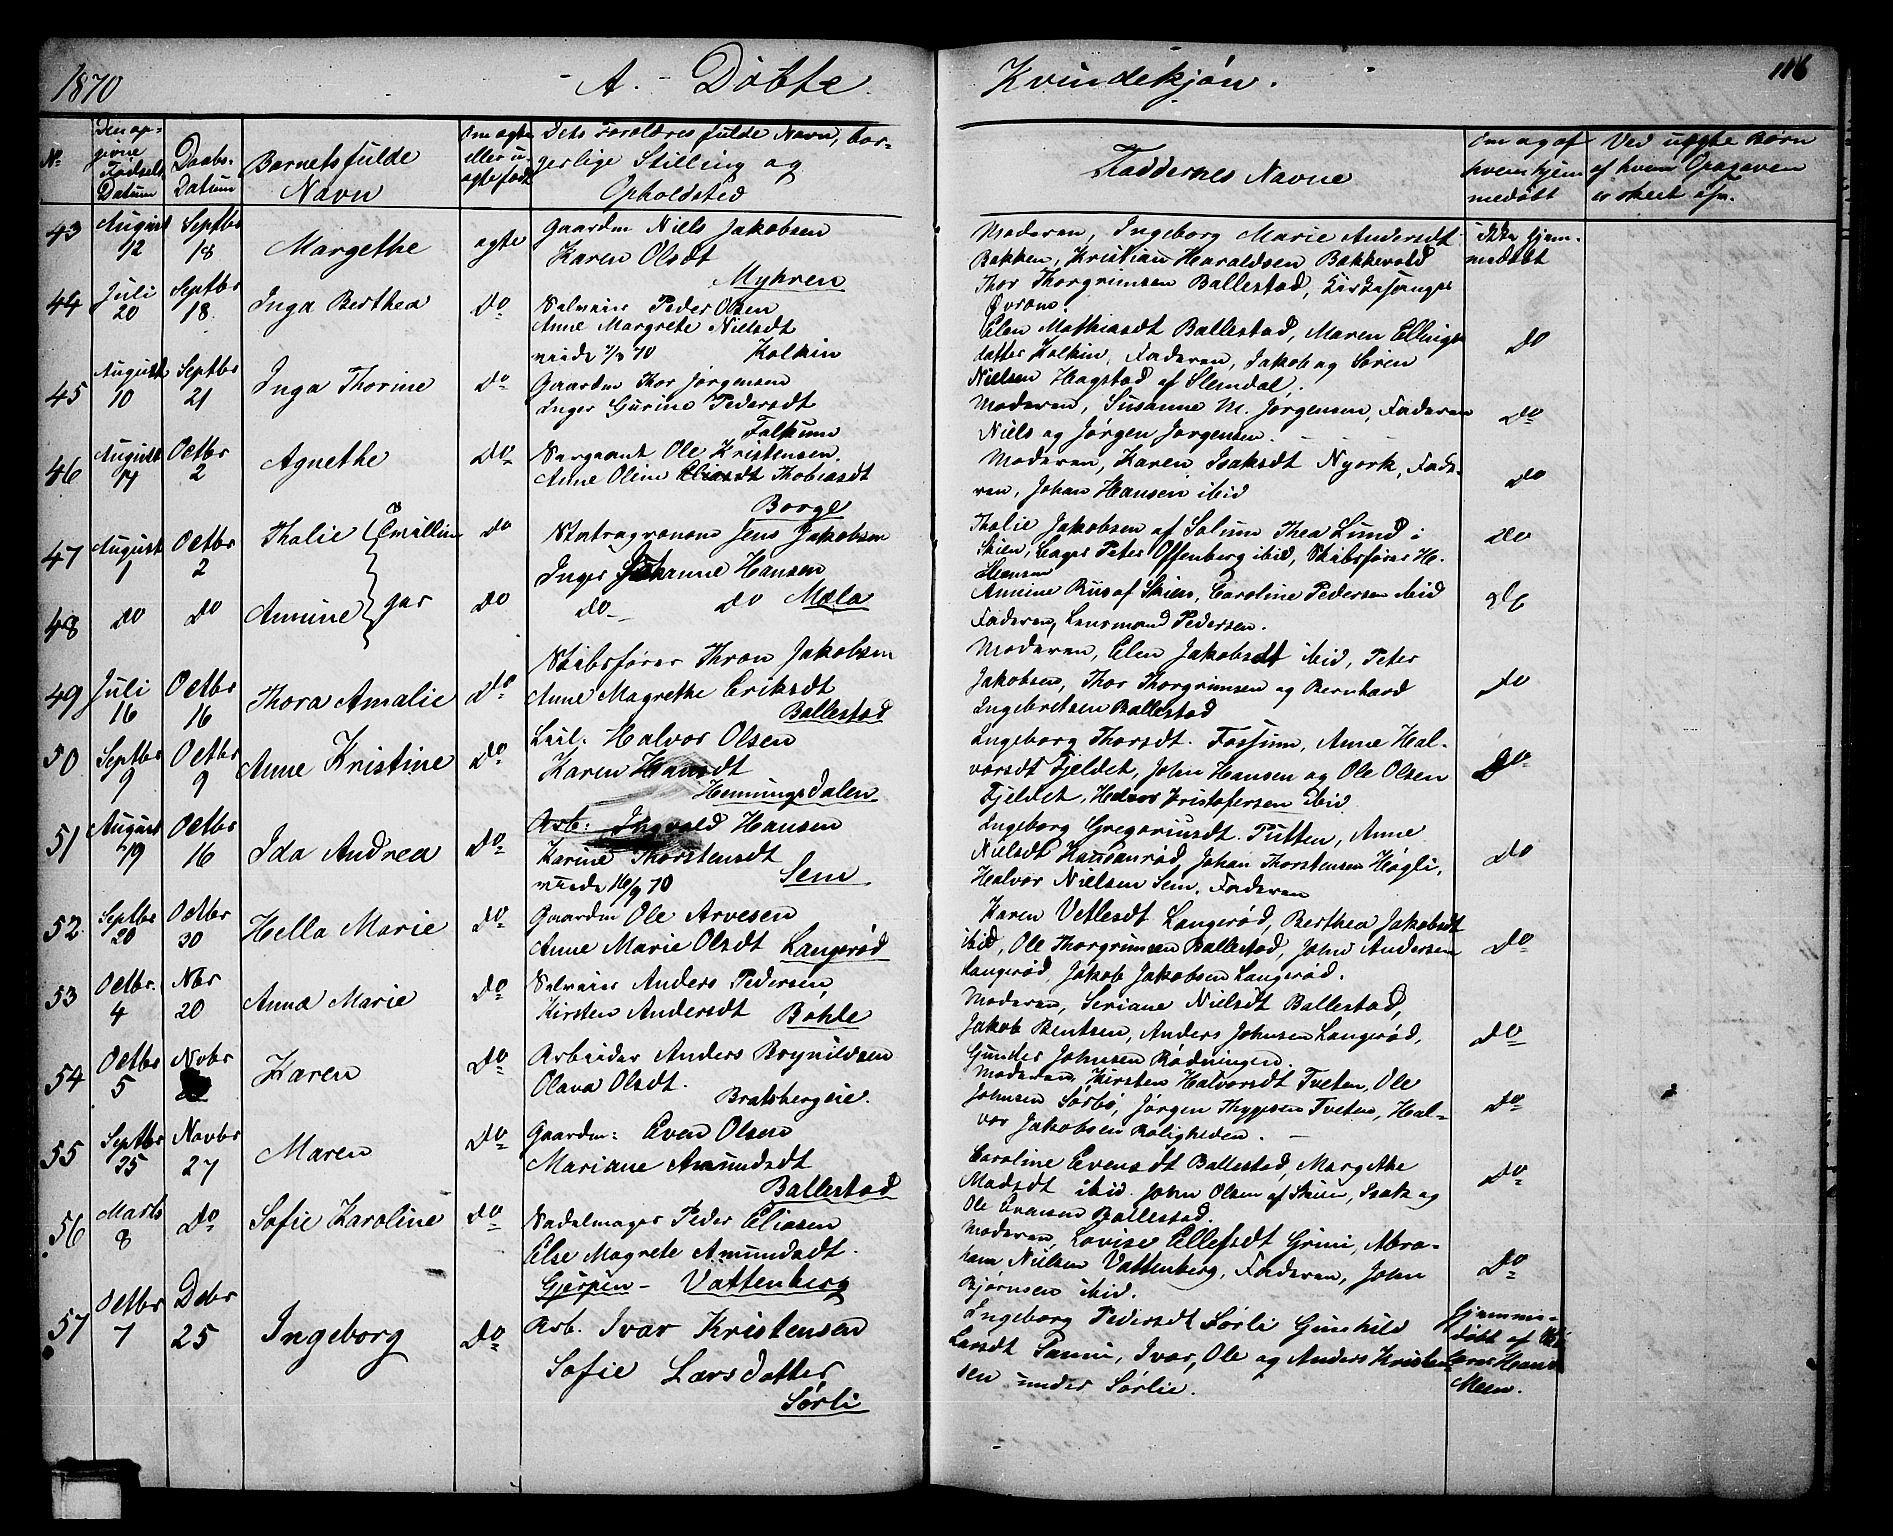 1870 - A. - Døbte Kvindekjøn. 116
No
Den op-
givne
Fødsels
Datum
Daabs-
Datum
Barnets fulde
Navn
Om ægte
eller u-
ægte født
Dets Forældres fulde Navn, bor-
gerlige Stilling og
Opholdsted
Faddernes Navne
Om og af
hvem hjem
medøbt
Ved uægte Børn
af hvem Opgaven
er skeet
43 August 12 Septbr 18 Margethe ægte
Gaardm Niels Jakobsen
Karen Olsdt
Myhren
Moderen, Ingeborg Marie Andersdt
Bakken, Kristian Haraldsen Bakkevold
Thor Thorgrimsen Ballestad, Kirkesanger
Øvrum
ikke hjem-
medøbt
44 Juli 20 Septbr 18. Inga Berthea Do
Selveier Peder Olsen
Anne Margrete Nielsdt
70 Kolkin
Elen Mathiasdt Ballestad, Maren Ellings
datter Kolkin, Faderen, Jakob og Søren
Nielsen Hagstad af Slemdal.
Do
45 August 10 Septbr 21 Inga Thorine Do
Gaardm Thor Jørgensen
Inger Gurine Pedersdt
Falkum
Moderen, Susanne M. Jørgensen, Faderen
Niels og Jørgen Jørgensen.
Do
46 August Octbr 2 Agnethe Do
Sergeant Ole Kristensen.
Anne Oline Thobiasdt
Borge
Moderen, Karen Isaksdt Nyork, Fade-
ren, Johan Hansen ibid
Do
47 August 1 Octbr 2 Thalie Do
Jens Jakobsen
Inger Johanne Hansen
Mæla
Thalie Jakobsen af Solum Thea Lund i
Skien, Peter Offenberg ibid, Skibsfører H.
Hansen
Do
48 Do Do Annine Do
Do Do
Annine Rus af Skien, Caroline Pedersen ibid
Faderen, Lensmand Pedersen.
Do
49 Juli 16 Octbr 16 Thora Amalie Do
Skibsfører Thron Jakobsen
Anne Magrethe Eriksdt
Ballestad
Moderen, Elen Jakobsdt ibid, Peter
Jakobsen, Thor Thorgrimsen og Bernhard
Ingebretsen Ballestad
Do
50 Septbr 9 Octbr 9 Anne Kristine Do
Leil. Halvor Olsen
Karen Hansdt
Henningsdalen
Ingeborg Thorsdt. Fossum, Anne Hal-
vorsdt Fjeldet, John Hansen og Ole Olsen
Fjeldet, Kristofersen ibid
Do
51 August 19 Octbr 16 Ida Andrea Do
Arb: Ingvald Hansen
Karine Thorstensdt
16/9 70 Sem
Ingeborg Gregoriusdt. Putten, Anne
Nielsdt, Johan Thorstensen Høgli,
Halvor Nielsen Sem, Faderen
Do
52 Septbr 20 Octbr 30 Hella Marie Do
Gaardm Ole Arvesen
Anne Marie Olsdt Langerød
Karen Vetlesdt Langerød, Berthea Jakobsdt
ibid, Ole Thorgrimsen Ballestad, John Andersen
Langerød, Jakob Jakobsen Langerød.
Do
53 Octbr. 4 Nbr 20 Anna Marie Do
Selveier Anders Pedersen
Kirsten Andersdt Bøhle
Moderen, Seriane Nielsdt Ballestad,
Jakob Bentsen, Anders Johnsen Langerød,
Gunder Johnsen Rødningen.
Do
54 Octbr 5 Novbr Karen Do
Arbeider Anders Brynildsen
Olava Olsdt.
Bratsbergeie.
Moderen, Kirsten Halvorsdt Tveten, Ole
Johnsen Sørbø, Jørgen Thygesen Tveten, Hal-
vor Jakobsen Roligheden. -
Do
55 Septbr 25 Novbr 27 Maren Do
Gaardm: Even Olsen
Mariane Amundsdt
Ballestad
Caroline Evensdt Ballestad, Margethe
Madsdt ibid. John Olsen af Skien, Isak og
Ole Evensen Ballestad.
Do
56 Marts 8 Do Sofie Karoline Do
Sadelmager Peder Eliasen
Else Magrete Amundsdt.
Gjerpen - Vattenberg
Moderen, Lovise Ellefsdt Grini, Abra-
ham Nielsen Vattenberg, Faderen, John
Bjørnsen ibid.
Do
57 Octbr 7 Debr 25 Ingeborg Do
Arb. Ivar Kristensen
Sofie Larsdatter
Sørli
Ingeborg Pedersdt Sørli Gunhild
Larsdt, Ivar, Ole og Anders Kristen-
sen under Sørlie.
Hjemme-
døbt af
Hans
Meen.